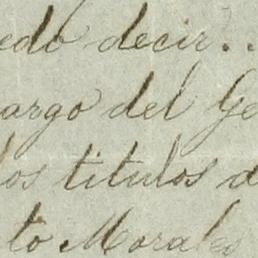 edo decir..
argo del Ge
los titulos d
to Morales